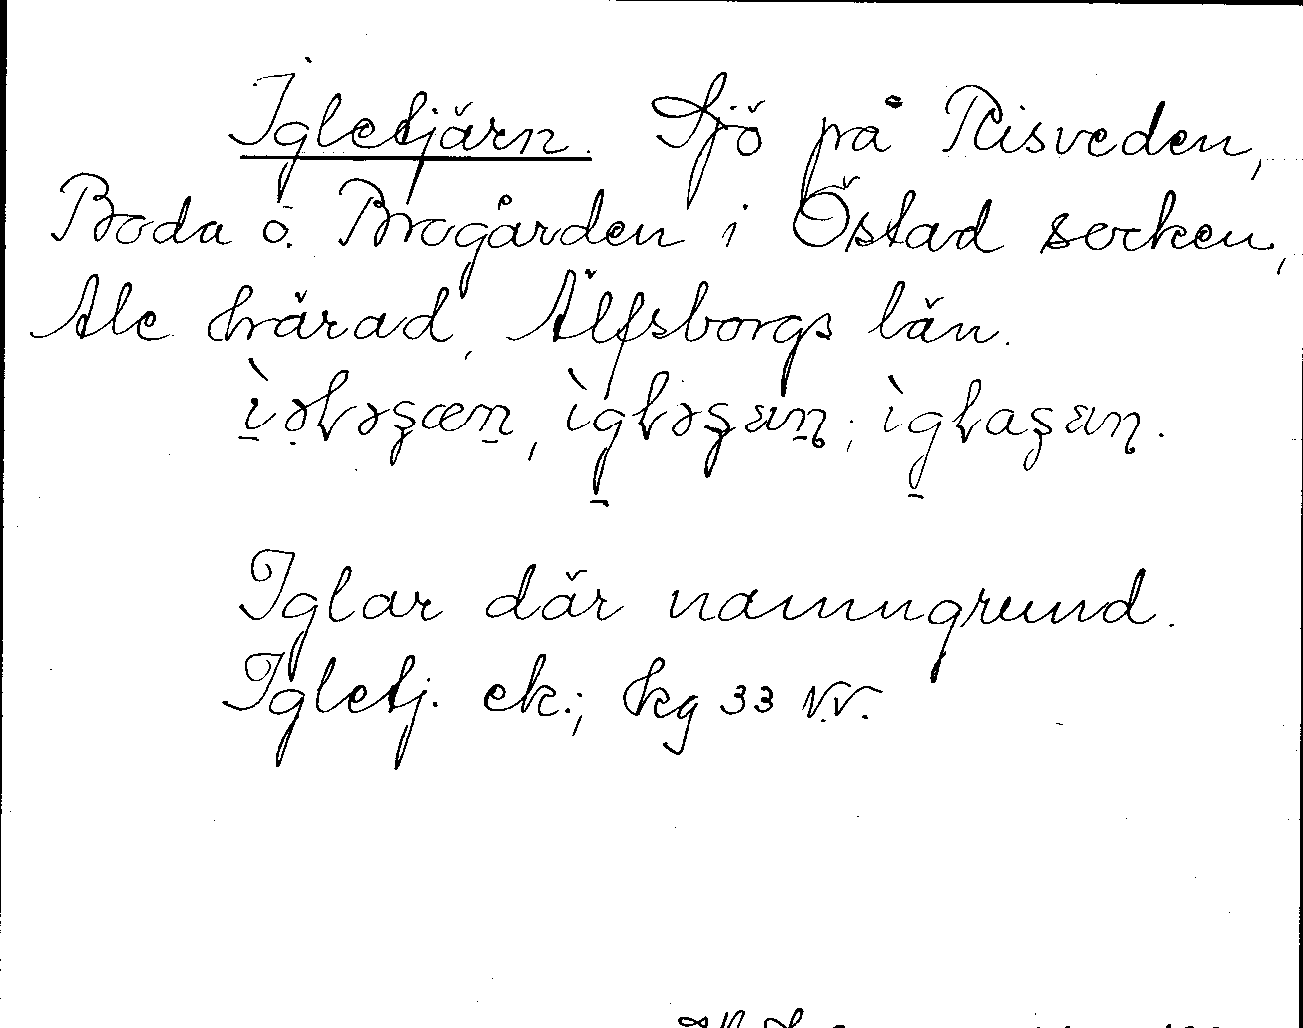 Igletjärn. Sjö på Risveden,
Boda o. Brogården i Östad socken,
Ale härad, Älfsborgs län.
Iglar där namngrund.
Igletj. ek.; kg 33 N.V.